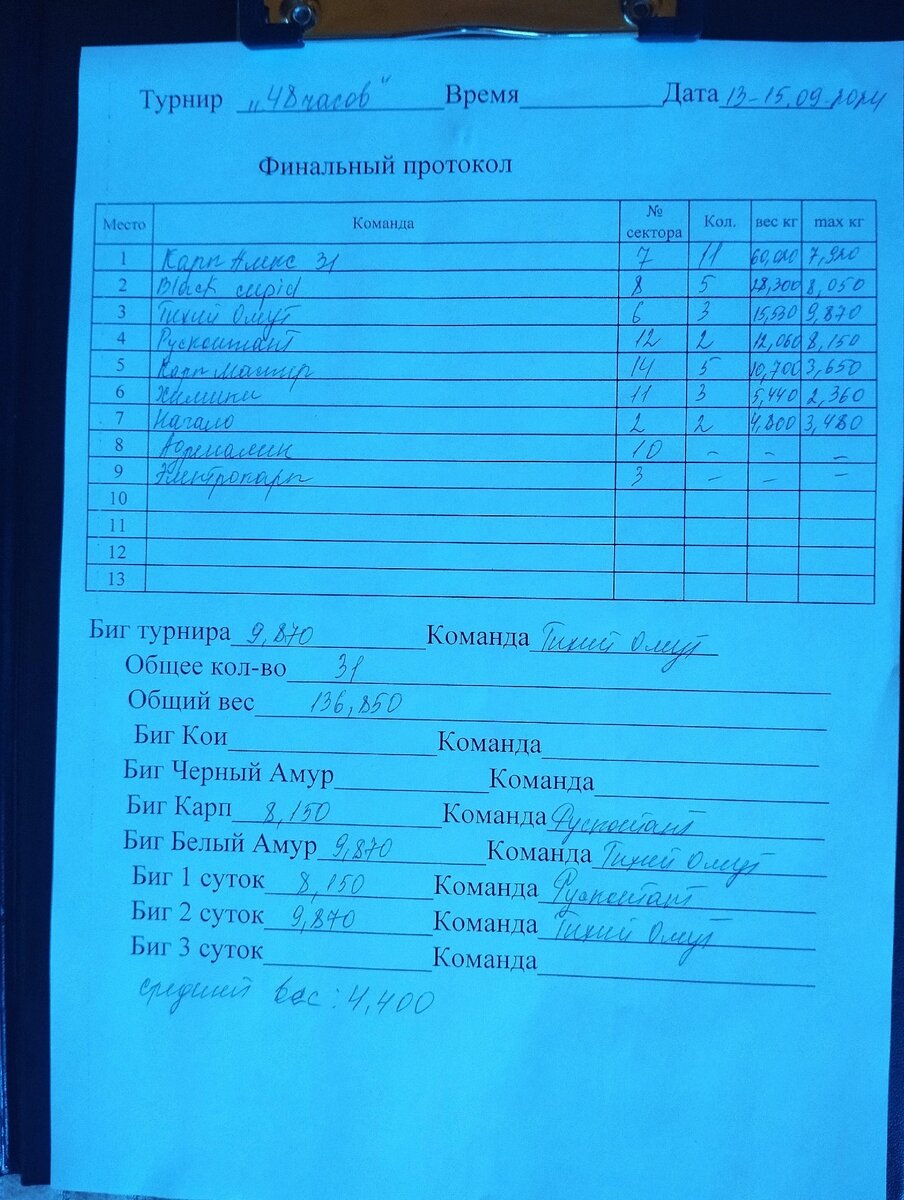 Турнир „48 часов" Время Дата 13-15.09.2024
Финальный протокол
Место Команда № сектора Кол. вес кг max кг
1 Карп Алекс 31 7 11 60,020 7,920
2 Black cupid 8 5 28,300 8,050
3 Тихий Омут 6 3 15,530 9,870
4 Русконтакт 12 2 12,060 8,150
5 Карп мастер 14 5 10,700 3,650
6 Химики 11 3 5,440 2,360
7 Начало 2 2 4,800 3,480
8 Адреналин 10 – – –
9 Электрокарп 3 – – –
10
11
12
13
Биг турнира 9,870 Команда Тихий Омут
Общее кол-во 31
Общий вес 136,850
Биг Кои Команда
Биг Черный Амур Команда
Биг Карп 8,150 Команда Русконтакт
Биг Белый Амур 9,870 Команда Тихий Омут
Биг 1 суток 8,150 Команда Русконтакт
Биг 2 суток 9,870 Команда Тихий Омут
Биг 3 суток Команда
средний вес: 4,400